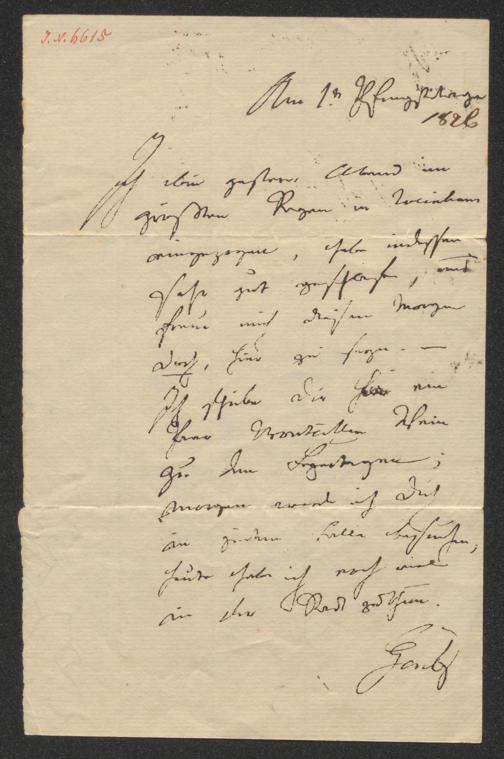 J.N. 6615
Am 1n Pfingsttage
1826
Ich bin gestern Abend im
größten Regen in Weinhaus
eingezogen, habe indessen
sehr gut geschlafen, und
freue mich diesen Morgen
doch, hier zu seyn. —
Ich schicke Dir hier ein
Paar Bouteillen Wein
zu den Feyertagen;
morgen werde ich Dich
in jedem Falle besuchen,
heute habe ich noch viel
in der Stadt zu thun.
Gentz